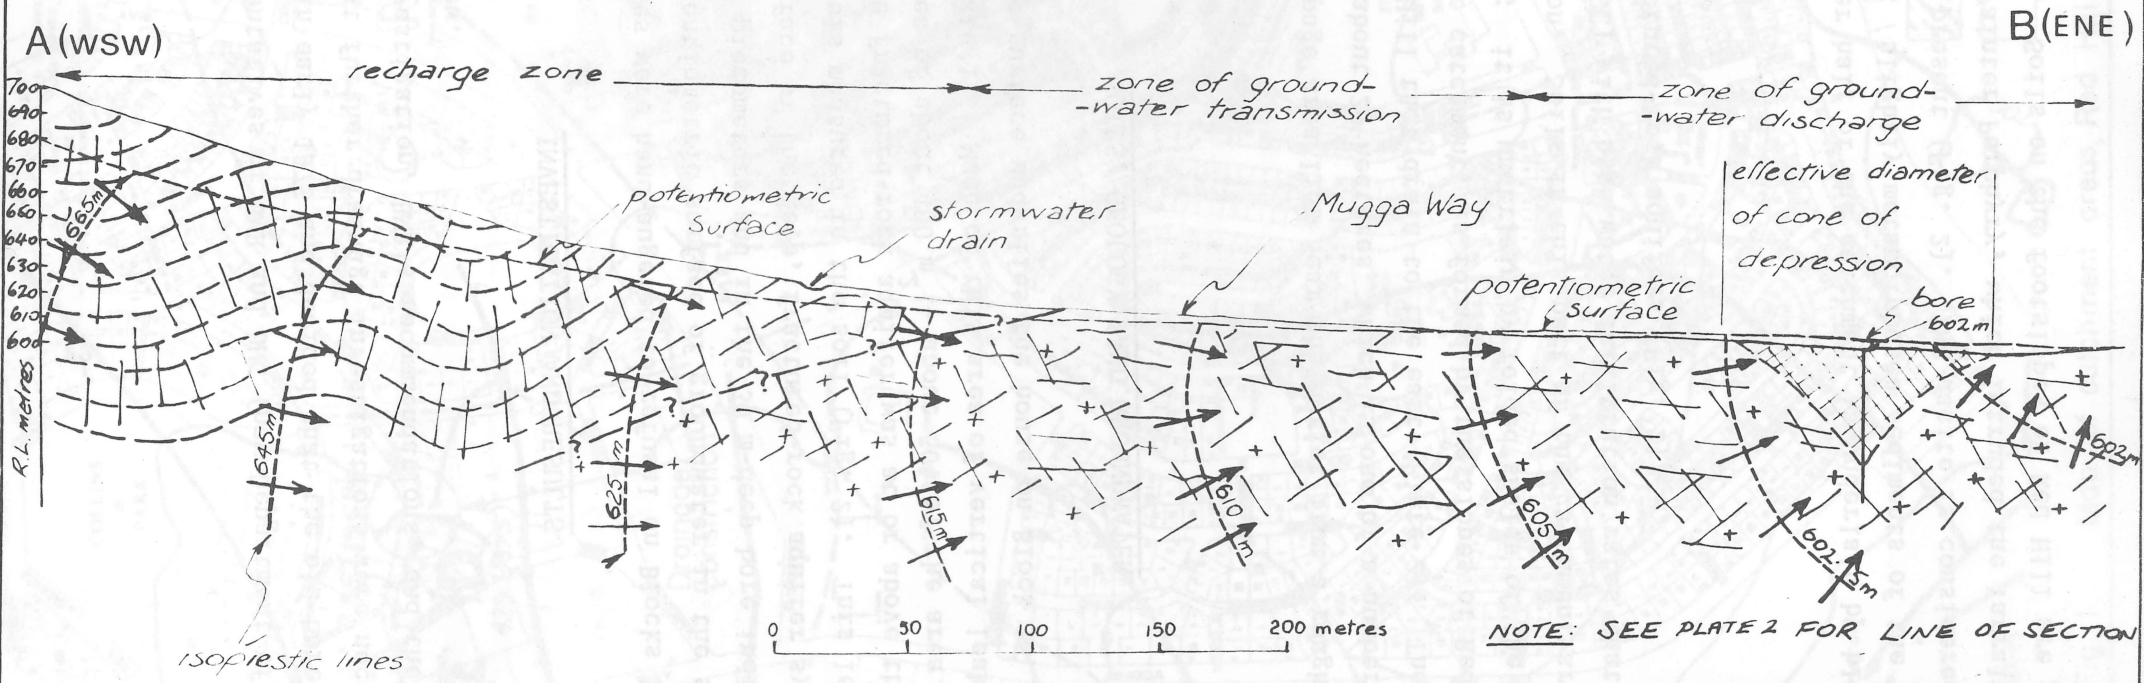 A (WSW)
B (ENE)
recharge zone
zone of ground-
-water transmission
zone of ground-
-water discharge
700
690
680
670
660
650
640
630
620
610
600
R.L. metres
potentiometric
surface
stormwater
drain
Mugga Way
potentiometric
surface
effective diameter
of cone of
depression
bore
602m
665m
645m
625 m
615m
610 m
605 m
602.5m
602m
?
?
?
?
?
isopiestic lines
0 50 100 150 200 metres
NOTE: SEE PLATE 2 FOR LINE OF SECTION